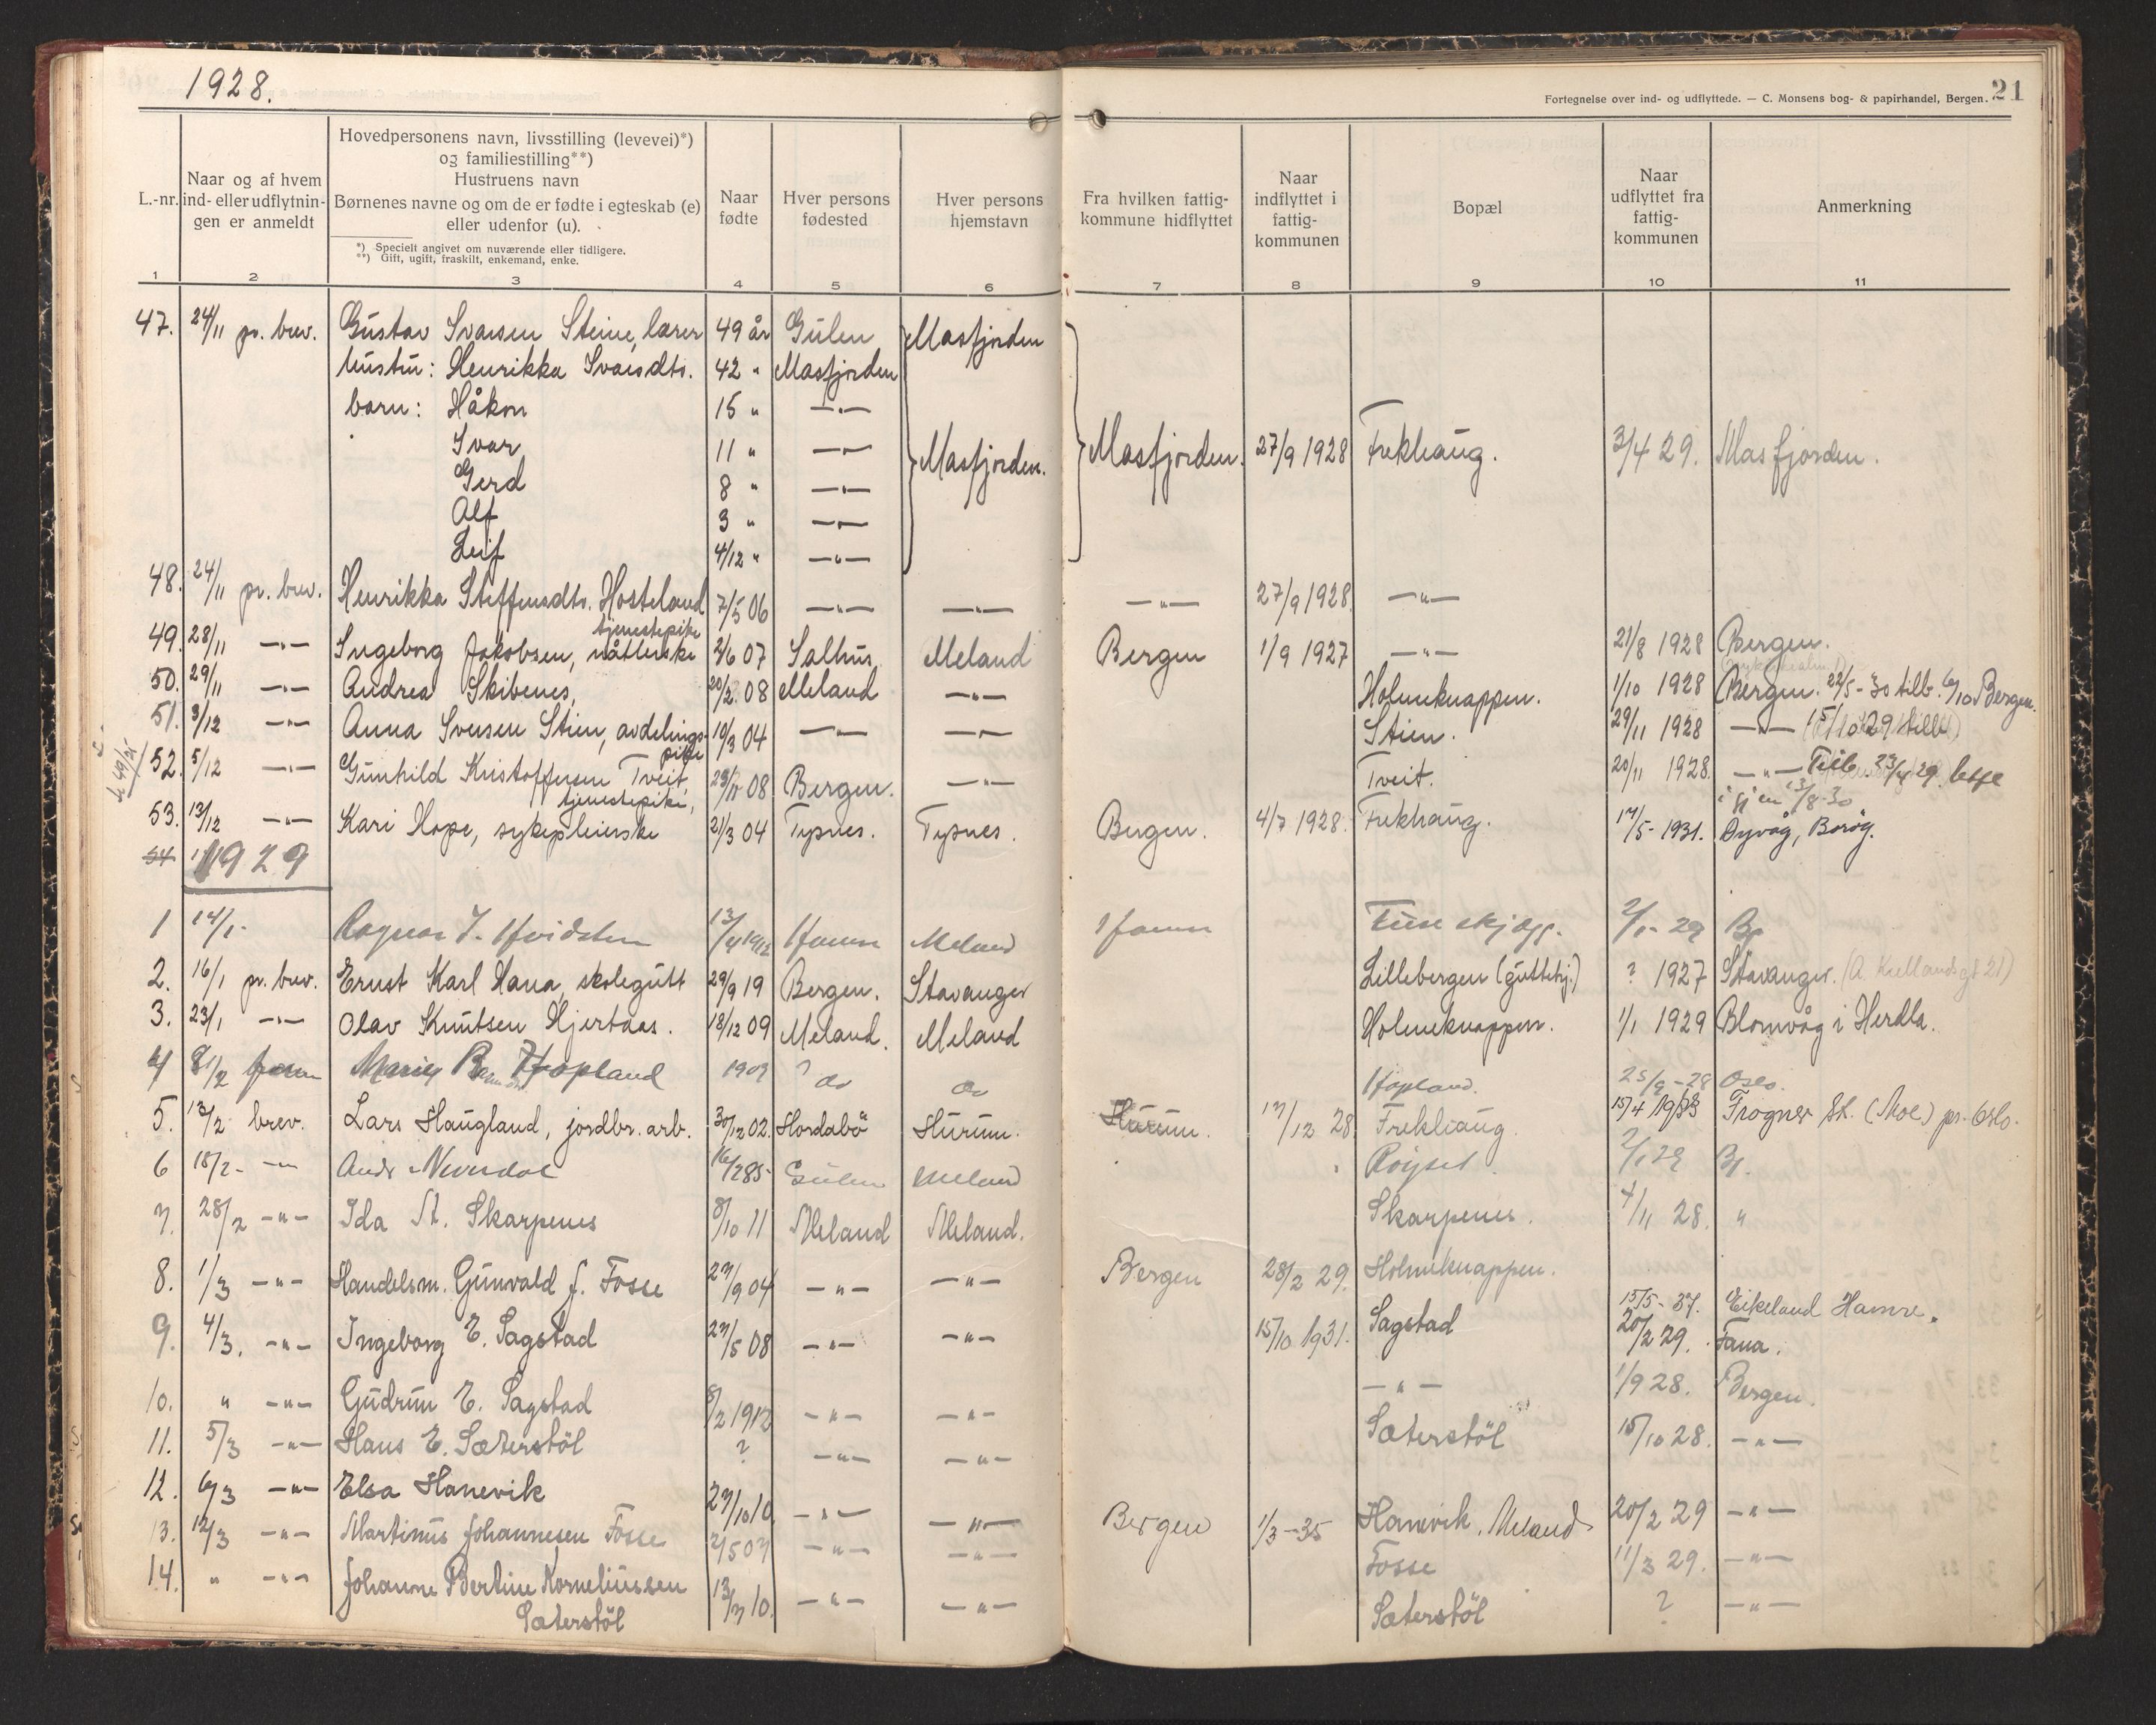 1928.
Fortegnelse over ind- og udflyttede. — C. Monsens bog- & papirhandel, Bergen. 21
L.-nr.
Naar og af hvem
ind- eller udflytnin-
gen er anmeldt
Hovedpersonens navn, livsstilling (levevei)*)
og familiestilling**)
Hustruens navn
Børnenes navne og om de er fødte i egteskab (e)
eller udenfor (u).
*) Specielt angivet om nuværende eller tidligere.
**) Gift, ugift, fraskilt, enkemand, enke.
Naar
fødte
Hver persons
fødested
Hver persons
hjemstavn
Fra hvilken fattig-
kommune hidflyttet
Naar
indflyttet i
fattig-
kommunen
Bopæl
Naar
udflyttet fra
fattig-
kommunen
Anmerkning
1 2 3 4 5 6 7 8 9 10 11
47. 24/11 pr. brev. Gustav Ivarsen Steine, lærer 49 år Gulen Masfjorden
hustru: Henrikka Ivarsdtr. 42 " Masfjorden
barn: Håkon 15 " —"—
Ivar 11 " —"— Masfjorden. Masfjorden. 27/9 1928 Frekhaug. 3/4 29. Masfjorden.
Gerd 8 " —"—
Alf 3 " —"—
Leif 4/12 " —"—
48. 24/11 pr. brev. Henrikka Steffensdtr. Hosteland 7/5 06 —"— —"— —"— 27/9 1928 —"—
tjenestepike
49. 28/11 —"— Ingeborg Jakobsen, 2/6 07 Salhus Meland Bergen 1/9 1927 —"— 21/8 1928 Bergen.
50. 29/11 —"— Andrea Skibenes, 20/2 08 Meland —"— Holmeknappen. 1/10 1928 Bergen. 22/5-30 tilb. 6/10 Bergen.
51. 3/12 —"— Anna Svensen Stien, avdelings- 19/3 04 —"— —"— Stien. 29/11 1928 —"— 15/10 29 tilb
pike
52. 5/12 —"— Gunhild Kristoffersen Tveit, 23/11 08 Bergen. —"— Tveit. 20/11 1928. —"— Tilb. 23/4 29.
tjenestepike, igjen 13/8-30
53. 13/12 —"— Kari Hope, sykepleierske 21/3 04 Tysnes. Tysnes. Bergen. 4/7 1928. Frekhaug. 14/5-1931. Dyvåg, Borøy.
54 1929
1 14/1- Ragnar J. Hvidsten 13/4 1912 Hamre Meland Hamre 2/1-29 Bg
2. 16/1 pr. brev. Ernst Karl Hana, skolegutt 29/9 19 Bergen. Stavanger Lillebergen (guttehj.) ? 1927 Stavanger. (A. Kiellandsgt 21)
3. 23/1 —"— Olav Knutsen Hjertaas. 18/12 09 Meland. Meland Holmeknappen. 1/1 1929 Blomvåg i Herdla.
4 8/2 Hopland 1909 do do Hopland. 25/9-28 Oslo.
5. 13/2 brev. Lars Haugland, jordbr. arb. 30/12 02. Hordabö Hurum. Hurum. 17/12 28 Frekhaug. 15/4 1933 Frogner St. (Moe) pr. Oslo.
6 18/2- —"— Andr Neverdal 16/2 85- Gulen Meland Röyset 2/1 29 Bg.
7. 28/2 —"— Ida M. Skarpenes 8/10 11 Meland Meland. Skarpenes. 4/11 28. "
8. 1/3 —"— Handelsm. Gunvald J. Fosse 27/9 04 —"— —"— Bergen 28/2 29. Holmeknappen.
15/5-37. Eikeland Hamre.
9. 4/3. —"— Ingeborg E. Sagstad 27/5 08 —"— —"— 15/10 1931. Sagstad 20/2 29. Fana.
10. " —"— Gudrun E. Sagstad 8/2 1912 —"— —"— —"— 1/9 28. Bergen.
11. 5/3 —"— Hans E. Sæterstöl ? —"— —"— Sæterstöl 15/10 28. —"—
12. 6/3 —"— Elsa Hanevik 27/10 10 —"— —"— Bergen 1/3-35 Hanevik, Meland 20/2 29 —"—
13. 12/3 —"— Martinus Johannesen Fosse 2/5 07 —"— —"— Fosse 11/3 29. —"—
14. " —"— Johanne Bertine Korneliussen 13/7 10. —"— —"— Sæterstöl ? —"—
Sæterstöl